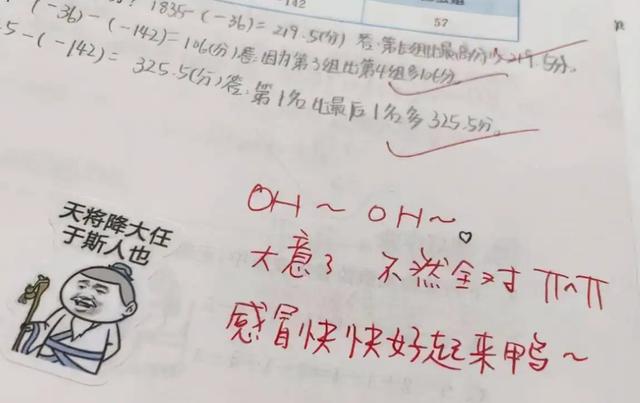 -142
57
(-36)= 1835-(-36)= 219.5(分) 答:第1组比最高分多219.5分。
(-36)-(-142)=106(分)答:因为第3组比第4组多106分。
.5-(-142)= 325.5(分)答:第1名比最后1名多325.5分。
OH~ OH~
大意了 不然全对 π^π
感冒快快好起来鸭~
天将降大任
于斯人也